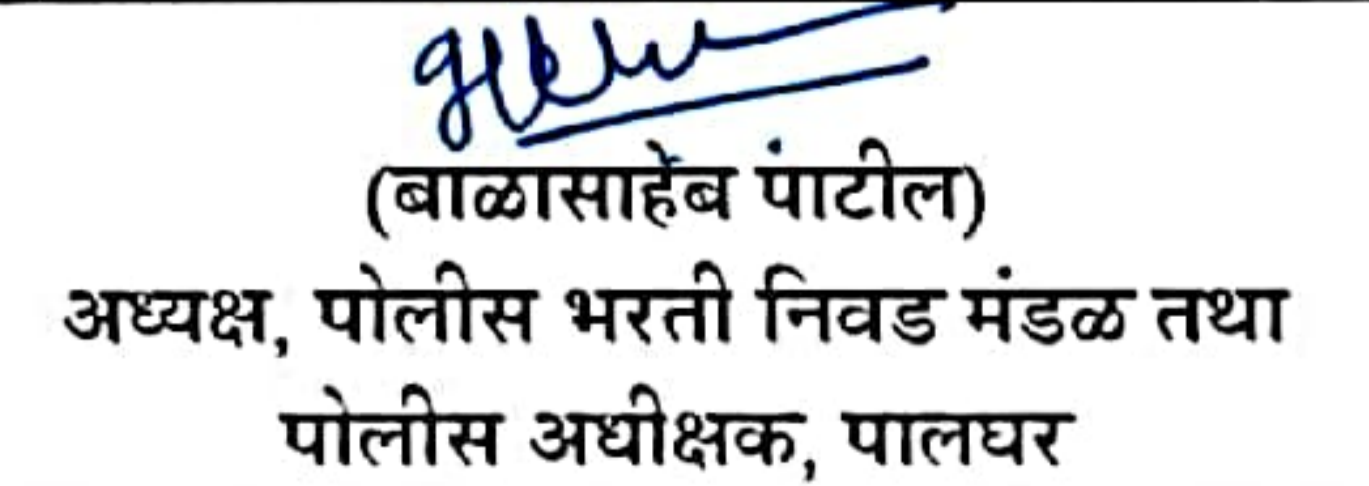 (बाळासाहेब पाटील)
अध्यक्ष, पोलीस भरती निवड मंडळ तथा
पोलीस अधीक्षक, पालघर